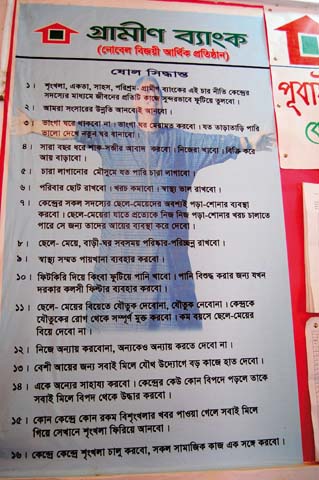 গ্রামীণ ব্যাংক
(নোবেল বিজয়ী আর্থিক প্রতিষ্ঠান)
ষোল সিদ্ধান্ত
১। শৃংখলা, একতা, সাহস, পরিশ্রম- গ্রামীণ ব্যাংকের এই চার নীতি কেন্দ্রের
সদস্যের মাধ্যমে জীবনের প্রতিটি কাজে সুন্দরভাবে ফুটিয়ে তুলবো।
২। আমরা সংসারের উন্নতি আনবোই আনবো।
৩। ভাংগা ঘরে থাকবো না। ভাংগা ঘর মেরামত করবো। যত তাড়াতাড়ি পারি
ভালো দেখে নতুন ঘর বানাবো।
৪। সারা বছর ধরে শাক-সব্জীর আবাদ করবো। নিজেরা খাবো। বিক্রি করে
আয় বাড়াবো।
৫। চারা লাগানোর মৌসুমে যত পারি চারা লাগাবো।
৬। পরিবার ছোট রাখবো। খরচ কমাবো। স্বাস্থ্য ভাল রাখবো।
৭। কেন্দ্রের সকল সদস্যের ছেলে-মেয়েদের অবশ্যই পড়া-শোনার ব্যবস্থা
করবো। ছেলে-মেয়েরা যাতে প্রত্যেকে নিজ নিজ পড়া-শোনার খরচ চালাতে
পারে সে জন্য তাদের আয়ের ব্যবস্থা করে দেবো।
৮। ছেলে-মেয়ে, বাড়ী-ঘর সবসময় পরিষ্কার-পরিচ্ছন্ন রাখবো।
৯। স্বাস্থ্য সম্মত পায়খানা ব্যবহার করবো।
১০। ফিটকিরি দিয়ে কিংবা ফুটিয়ে পানি খাবো। পানি বিশুদ্ধ করার জন্য যখন
দরকার কলসী ফিল্টার ব্যবহার করবো।
১১। ছেলে-মেয়ের বিয়েতে যৌতুক দেবোনা, যৌতুক নেবোনা। কেন্দ্রকে
যৌতুকের রোগ থেকে সম্পূর্ণ মুক্ত করবো। কম বয়সে ছেলে-মেয়ের
বিয়ে দেবো না।
১২। নিজে অন্যায় করবোনা, অন্যকেও অন্যায় করতে দেবো না।
১৩। বেশী আয়ের জন্য সবাই মিলে যৌথ উদ্যোগে বড় কাজে হাত দেবো।
১৪। একে অন্যের সাহায্য করবো। কেন্দ্রের কেউ কোন বিপদে পড়লে তাকে
সবাই মিলে বিপদ থেকে উদ্ধার করবো।
১৫। কোন কেন্দ্রে কোন রকম বিশৃংখলার খবর পাওয়া গেলে সবাই মিলে
গিয়ে সেখানে শৃংখলা ফিরিয়ে আনবো।
১৬। কেন্দ্রে কেন্দ্রে শৃংখলা চালু করবো, সকল সামাজিক কাজ এক সঙ্গে করবো।